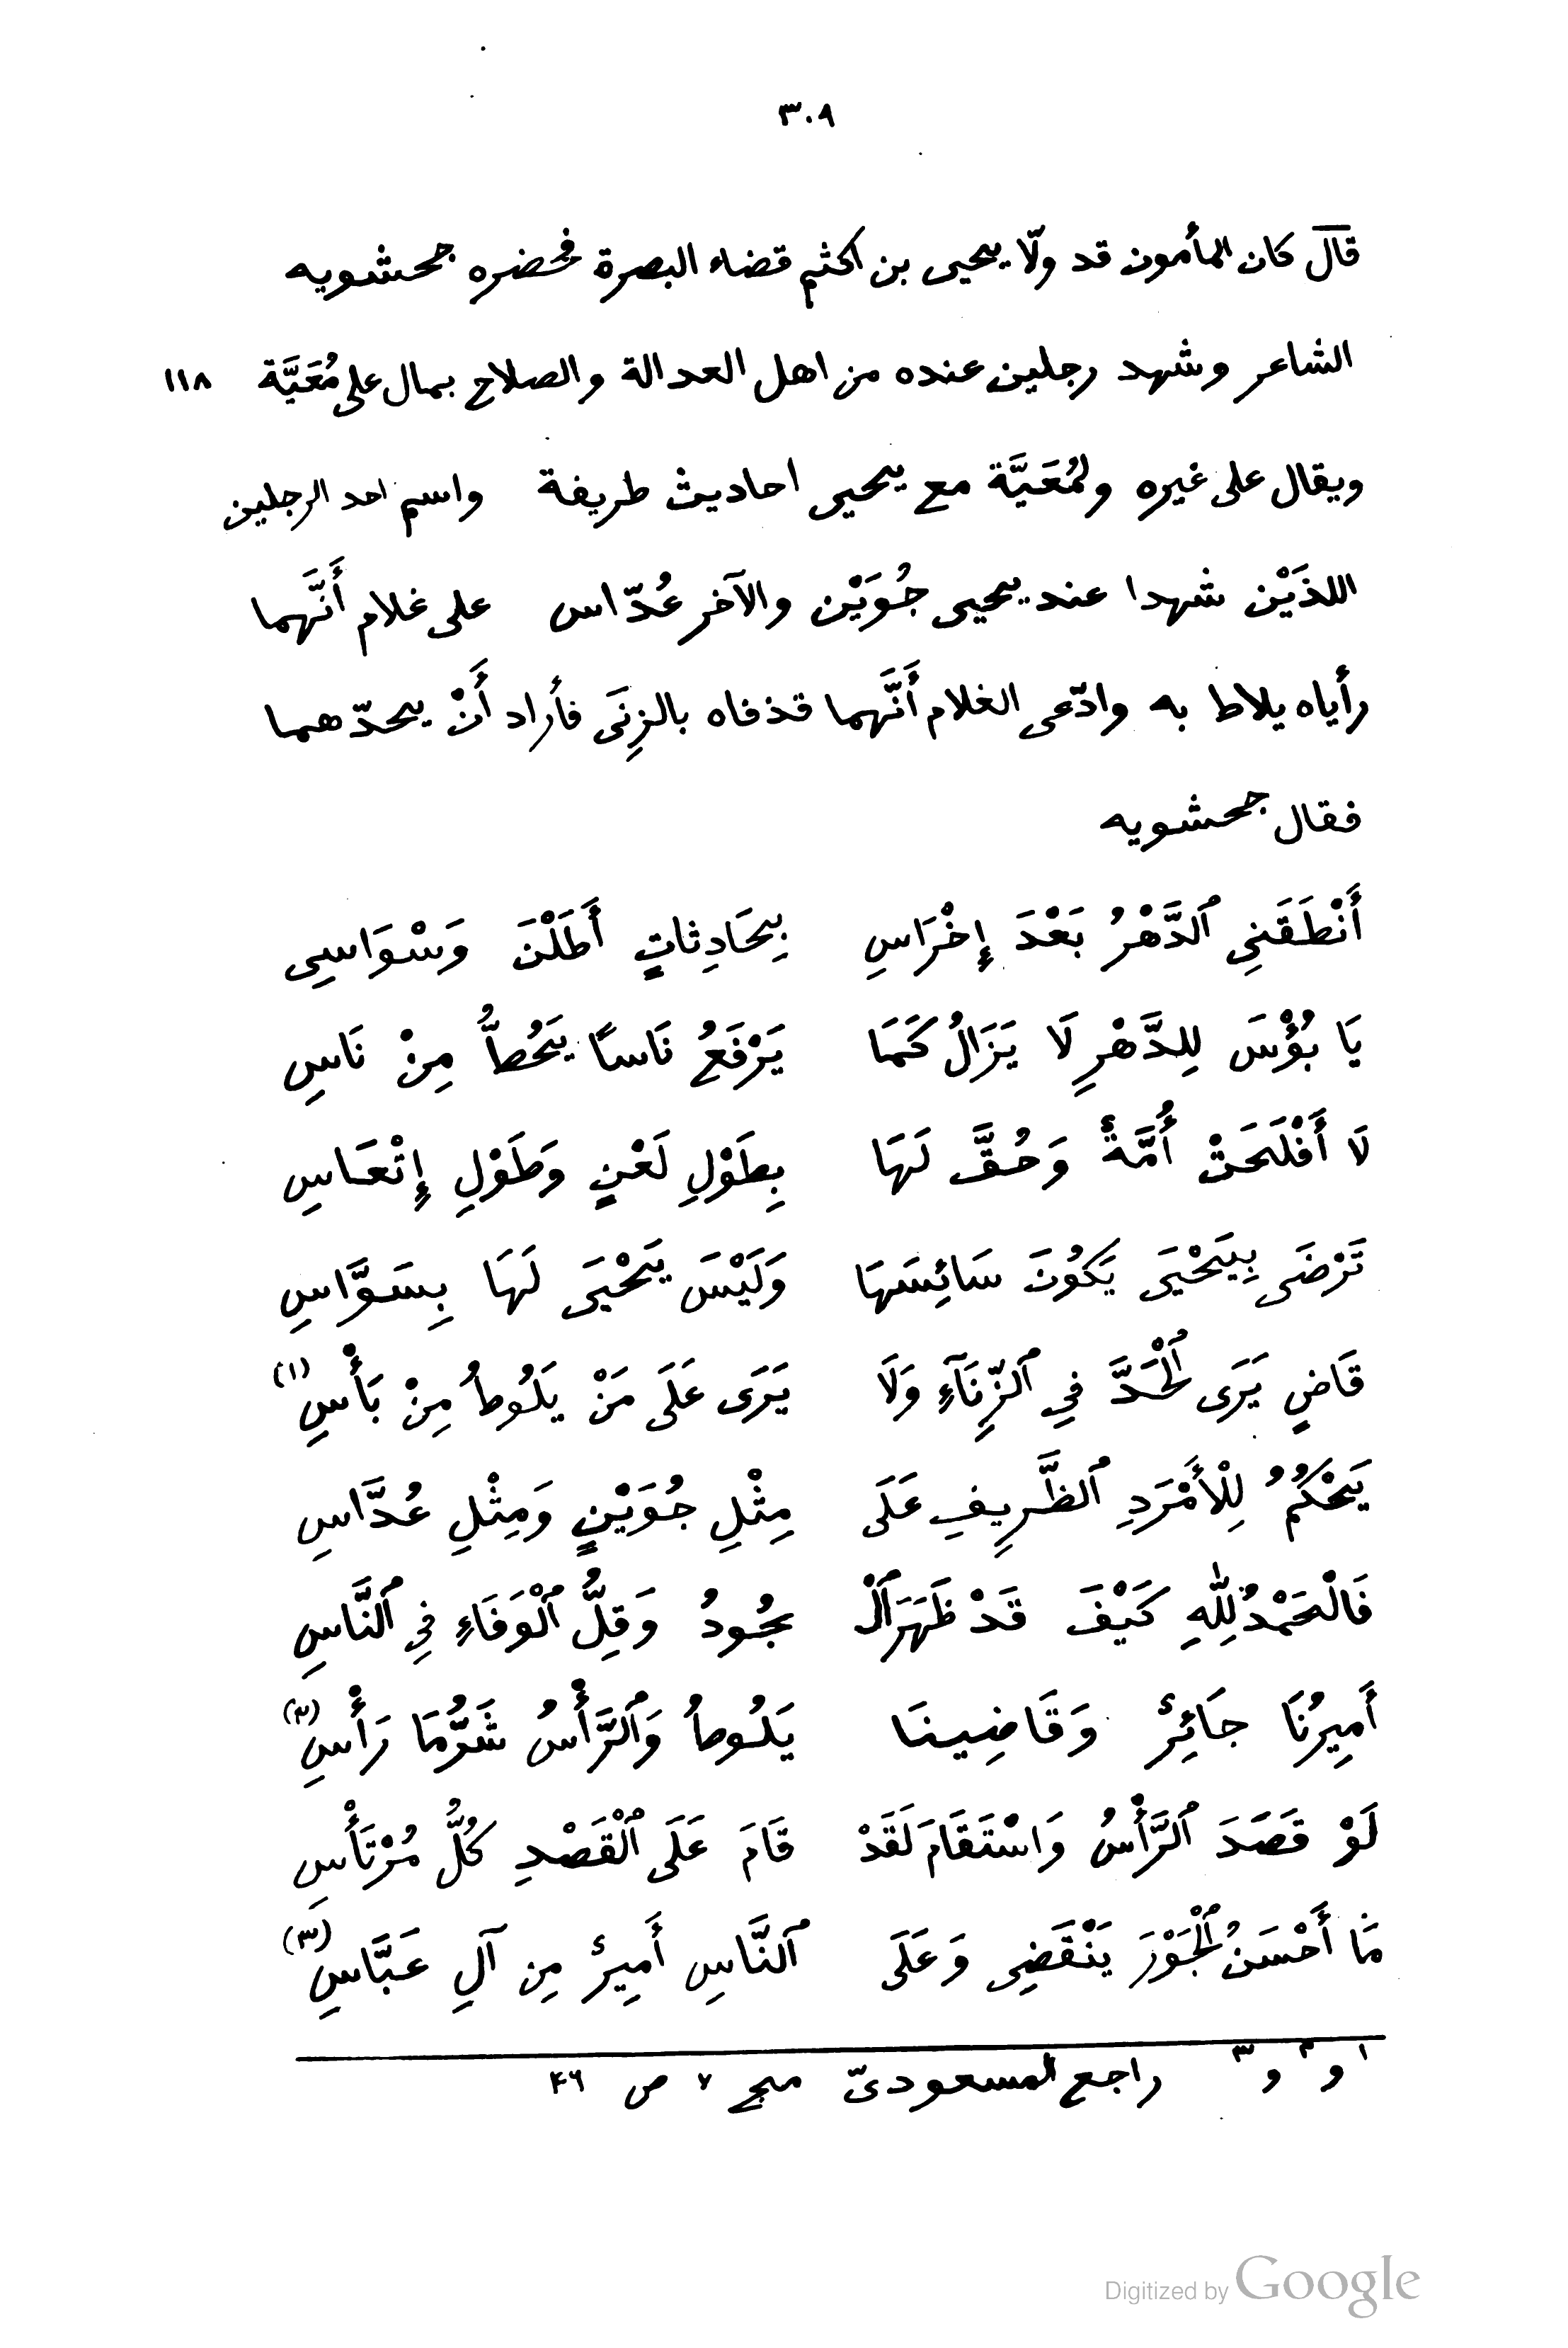 ٣٠٩
قالَ كان المأمون قد ولّا يحيى بن اكثم قضاء البصرة فحضره جحشويه
الشاعر وشهد رجلين عنده من اهل العدالة والصلاح بمال على مُعَيَّة ١١٨
ويقال على غيره ولمُعَيَّة مع يحيى احاديث طريفة واسم احد الرجلين
اللذَيْن شهدا عند يحيى جُوَيْن والآخر عُدّاس على غلام أَنَّهما
رأياه يلاط به وادّعى الغلام أَنَّهما قذفاه بالزِنَى فأراد أَنْ يحدّهما
فقال جحشويه
أَنْطَقَنِى ٱلدَّهْرُ بَعْدَ إِخْرَاسِ بِحَادِثاتٍ أَطَلْنَ وَسْوَاسِى
يَا بُؤْسَ لِلدَّهْرِ لَا يَزَالُ كَمَا يَرْفَعُ نَاسًا يَحُطُّ مِنْ نَاسِ
لَا أَفْلَحَتْ أُمَّةٌ وَحُقَّ لَهَا بِطَوْلِ لَعْنٍ وَطَوْلِ إِتْعَاسِ
تَرْضَى بِيَحْيَى يَكُونَ سَائِسَهَا وَلَيْسَ يَحْيَى لَهَا بِسَوَّاسِ
قَاضٍ يَرَى ٱلْحَدَّ فِي ٱلزِّنَآءِ وَلَا يَرَى عَلَى مَنْ يَلُوطُ مِنْ بَأْسِ (١)
يَحْكُمُ لِلْأَمْرَدِ ٱلظَّرِيفِ عَلَى مِثْلِ جُوَيْنٍ وَمِثْلِ عُدَّاسِ
فَالْحَمْدُ لِلّٰهِ كَيْفَ قَدْ ظَهَرَ ٱلْـ جُودُ وَقِلُّ ٱلْوَفَاءِ فِي ٱلنَّاسِ
أَمِيرُنَا جَائِرٌ وَقَاضِينَا يَلُوطُ وَٱلرَّأْسُ شَرُّمَا رَأْسِ (٢)
لَوْ قَصَدَ ٱلرَّأْسُ وَاسْتَقَامَ لَقَدْ قَامَ عَلَى ٱلْقَصْدِ كُلُّ مُرْتَأْسِ
مَا أَحْسَنُ ٱلْجَوْرَ يَنْقَضِى وَعَلَى ٱلنَّاسِ أَمِيرٌ مِن آلِ عَبَّاسِ (٣)
١ و ٢ و ٣ راجع المسعودىّ مج ٧ ص ٤٦
Digitized by Google